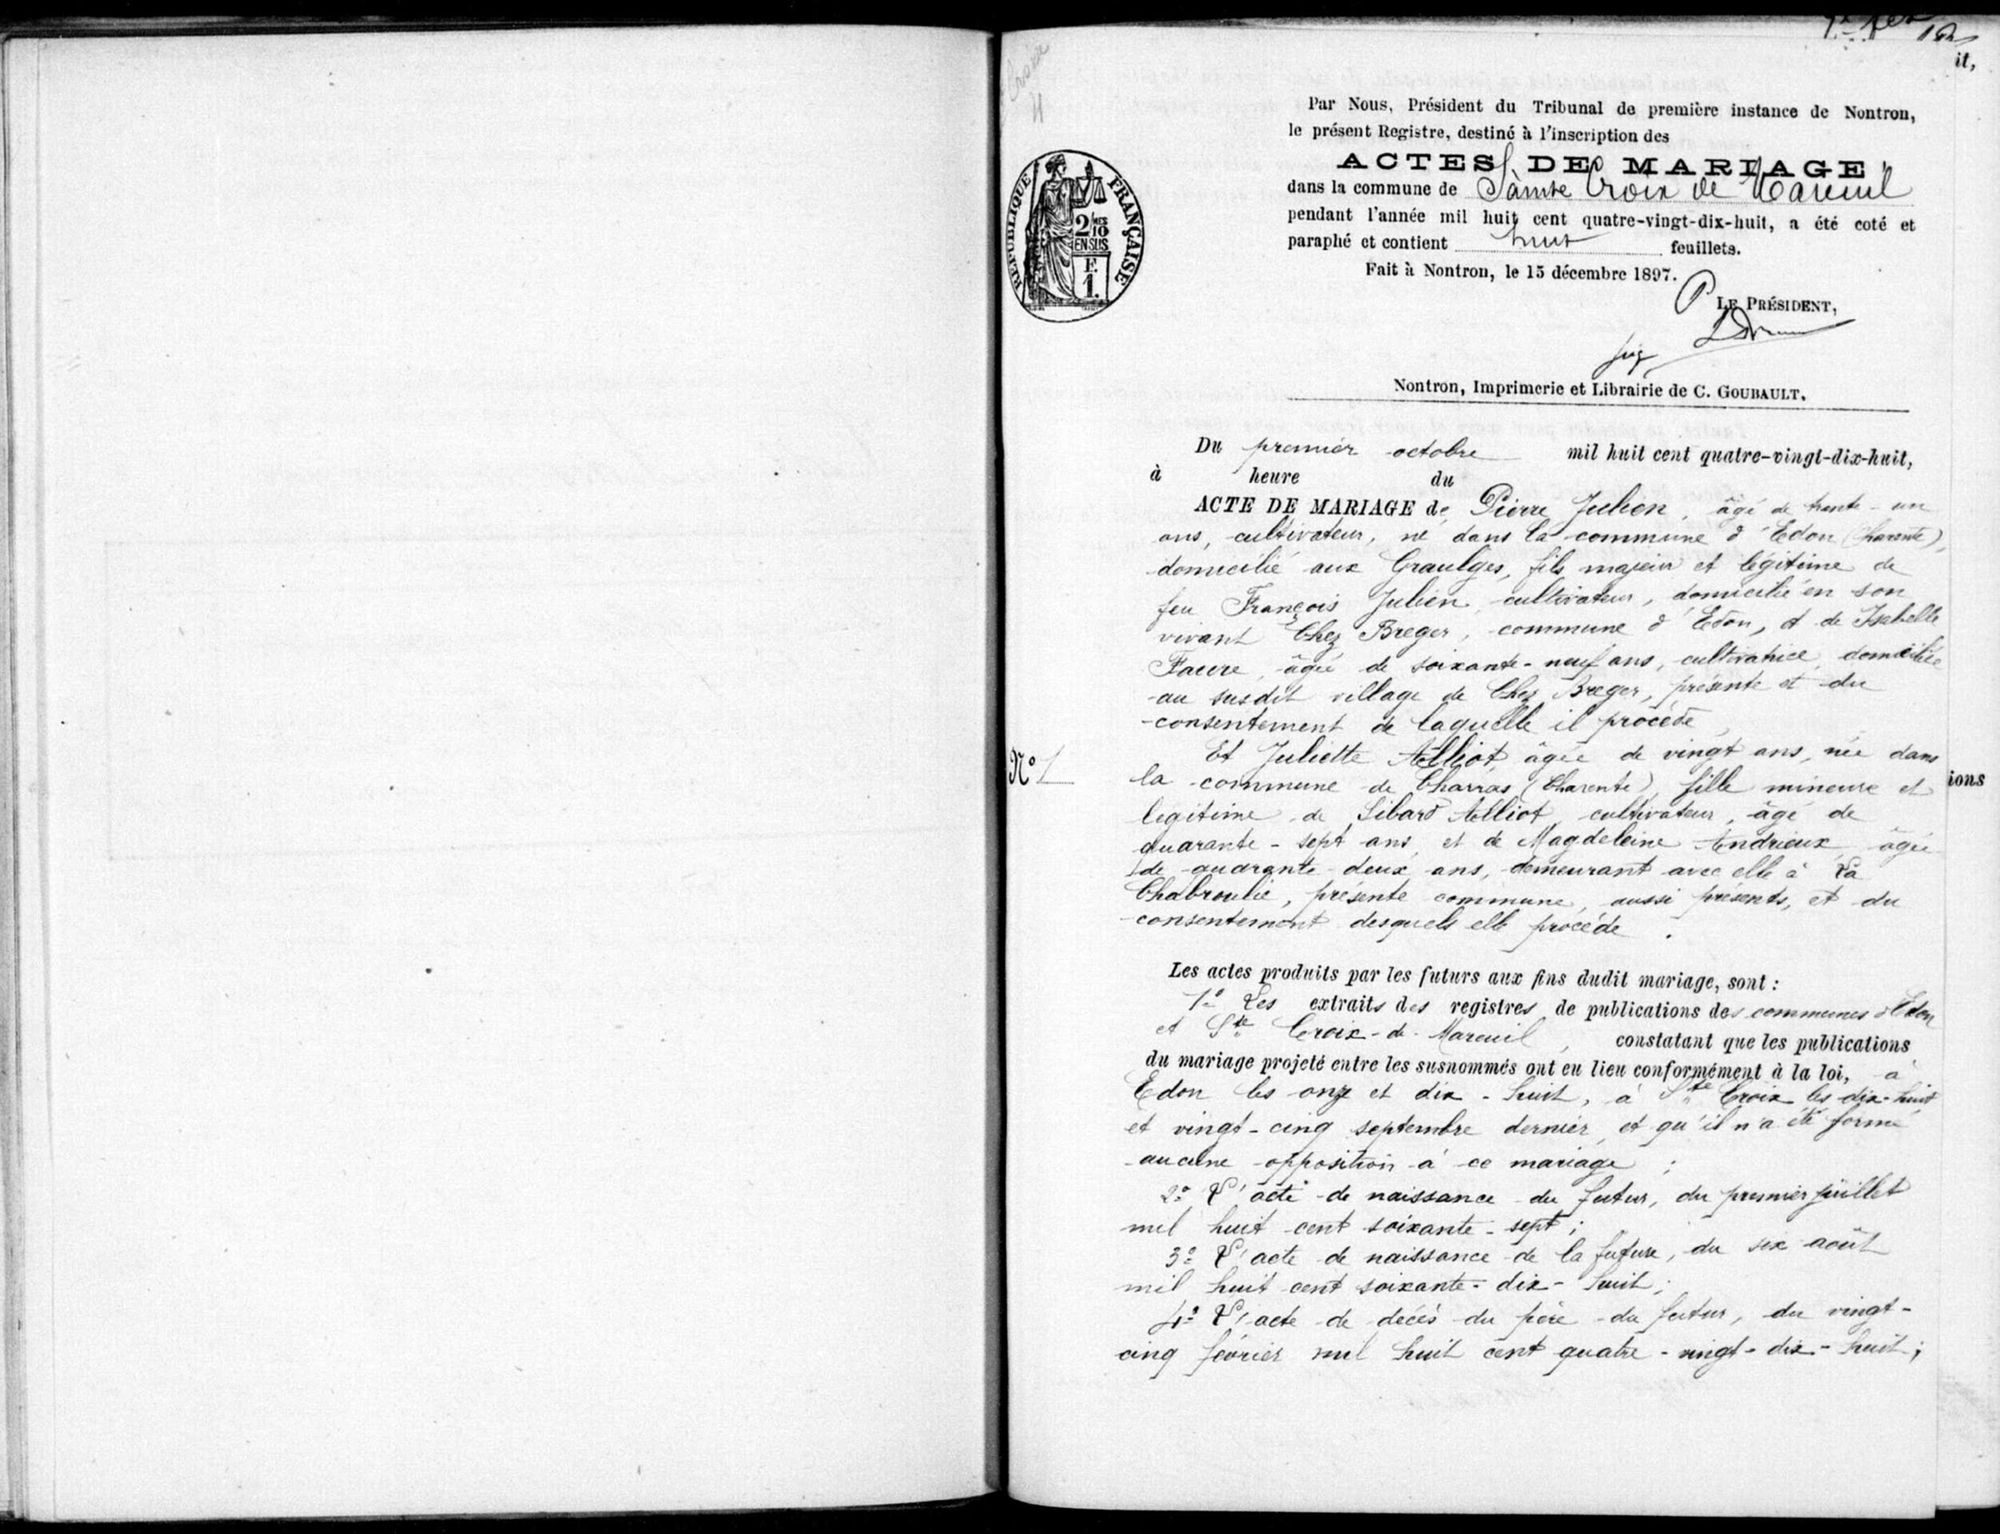 it,
Par Nous, Président du Tribunal de première instance de Nontron,
le présent Registre, destiné à l'inscription des
ACTES DE MARIAGE
dans la commune de Sainte Croix de Mareuil
pendant l'année mil huit cent quatre-vingt-dix-huit, a été coté et
paraphé et contient huit feuillets.
Fait à Nontron, le 15 décembre 1897.
LE PRÉSIDENT,
RÉPUBLIQUE FRANÇAISE
2/10
EN SUS
F.
1.
Nontron, Imprimerie et Librairie de C. GOUBAULT.
Du premier octobre mil huit cent quatre-vingt-dix-huit,
à heure du
ACTE DE MARIAGE de Pierre Julien, âgé de trente-un
ans, cultivateur, né dans la commune d'Edon (Charente),
domicilié aux Graulges, fils majeur et légitime de
feu François Julien, cultivateur, domicilié en son
vivant Chez Breger, commune d'Edon, et de Isabelle
Faure, âgée de soixante-neuf ans, cultivatrice, domiciliée
au susdit village de Chez Breger, présente et du
consentement de laquelle il procède,
N° 1
Et Juliette Alliot, âgée de vingt ans, née dans
la commune de Charras (Charente), fille mineure et
légitime de Libard Alliot, cultivateur, âgé de
quarante-sept ans, et de Magdeleine Andrieux, âgée
de quarante-deux ans, demeurant avec elle à La
Chabroulie, présente commune, aussi présents, et du
consentement desquels elle procède.
ions
Les actes produits par les futurs aux fins dudit mariage, sont :
1° Les extraits des registres de publications des communes d'Edon
et Ste Croix-de-Mareuil, constatant que les publications
du mariage projeté entre les susnommés ont eu lieu conformément à la loi, à
Edon les onze et dix-huit, à Ste Croix les dix-huit
et vingt-cinq septembre dernier, et qu'il n'a été formé
aucune opposition à ce mariage ;
2° L'acte de naissance du futur, du premier juillet
mil huit cent soixante-sept ;
3° L'acte de naissance de la future, du six août
mil huit cent soixante-dix-huit ;
4° L'acte de décès du père du futur, du vingt-
cinq février mil huit cent quatre-vingt-dix-huit ;